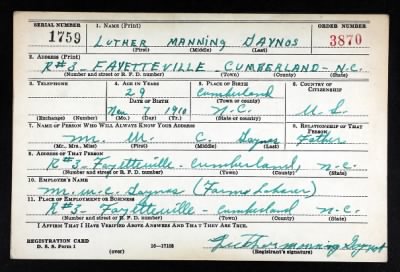 SERIAL NUMBER 1. NAME (Print) ORDER NUMBER
1759 LUTHER MANNING GAYNOS 3870
(First) (Middle) (Last)
2. ADDRESS (Print)
R#3- FAYETTEVILLE CUMBERLAND- N.C.
(Number and street or R. F. D. number) (Town) (County) (State)
3. TELEPHONE 4. AGE IN YEARS 5. PLACE OF BIRTH 6. COUNTRY OF CITIZENSHIP
29 Cumberland
DATE OF BIRTH (Town or county)
Nov 7 1910 N.C. U.S.
(Exchange) (Number) (Mo.) (Day) (Yr.) (State or country)
7. NAME OF PERSON WHO WILL ALWAYS KNOW YOUR ADDRESS RELATIONSHIP OF THAT PERSON
Mr. W. C. Gaynos Father
(Mr., Mrs., Miss) (First) (Middle) (Last)
8. ADDRESS OF THAT PERSON
R#3- Fayetteville- Cumberland, N.C.
(Number and street or R. F. D. number) (Town) (County) (State)
10. EMPLOYER'S NAME
Mr. W.C. Gaynos (Farm Laborer)
11. PLACE OF EMPLOYMENT OR BUSINESS
R#3- Fayetteville- Cumberland N.C.
(Number and street or R. F. D. number) (Town) (County) (State)
I AFFIRM THAT I HAVE VERIFIED ABOVE ANSWERS AND THAT THEY ARE TRUE.
REGISTRATION CARD
D. S. S. Form 1 (over) 16—17105 Luther manning
(Registrant's signature)